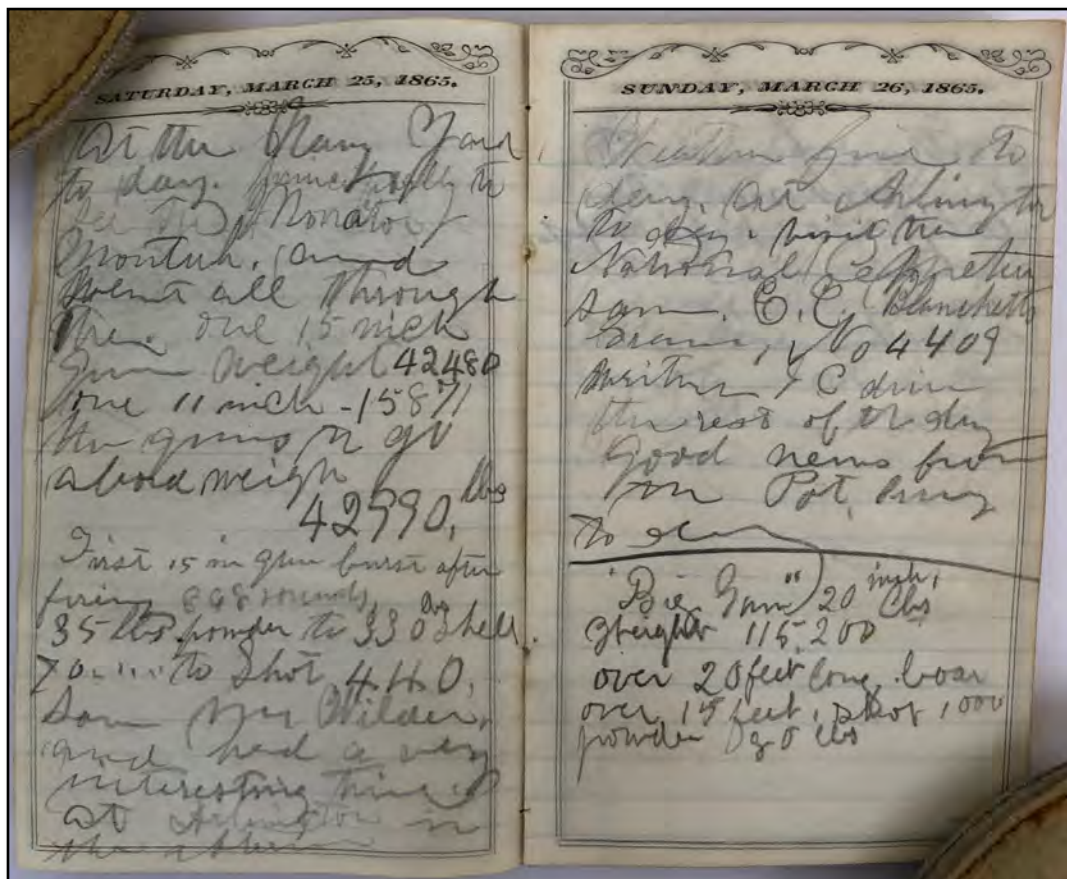 SATURDAY, MARCH 25, 1865.
At the Navy Yard
to day. principally to
see the Monitor
Montuk, and
went all through
her. one 15 inch
Gun weight 42480
one 11 inch - 15871
the guns to go
aboard weigh
42990, lbs
First 15 in gun burst after
firing 868 rounds,
35 lbs. powder to 330 lbs Shell.
70 to Shot 440,
Saw Mr Wilder,
and had a very
interesting time
at Arlington in
the
SUNDAY, MARCH 26, 1865.
Weather fine to
day, at Arlington
to day, visit the
National
saw, E. C. Blanchetts
Grave, No 4409
the rest of the day
Good news from
Pot. Army
to
"Big Gun" 20 inch,
Weight 115,200 lbs
over 20 feet long, boar
over 15 feet, shot 1000
powder lbs